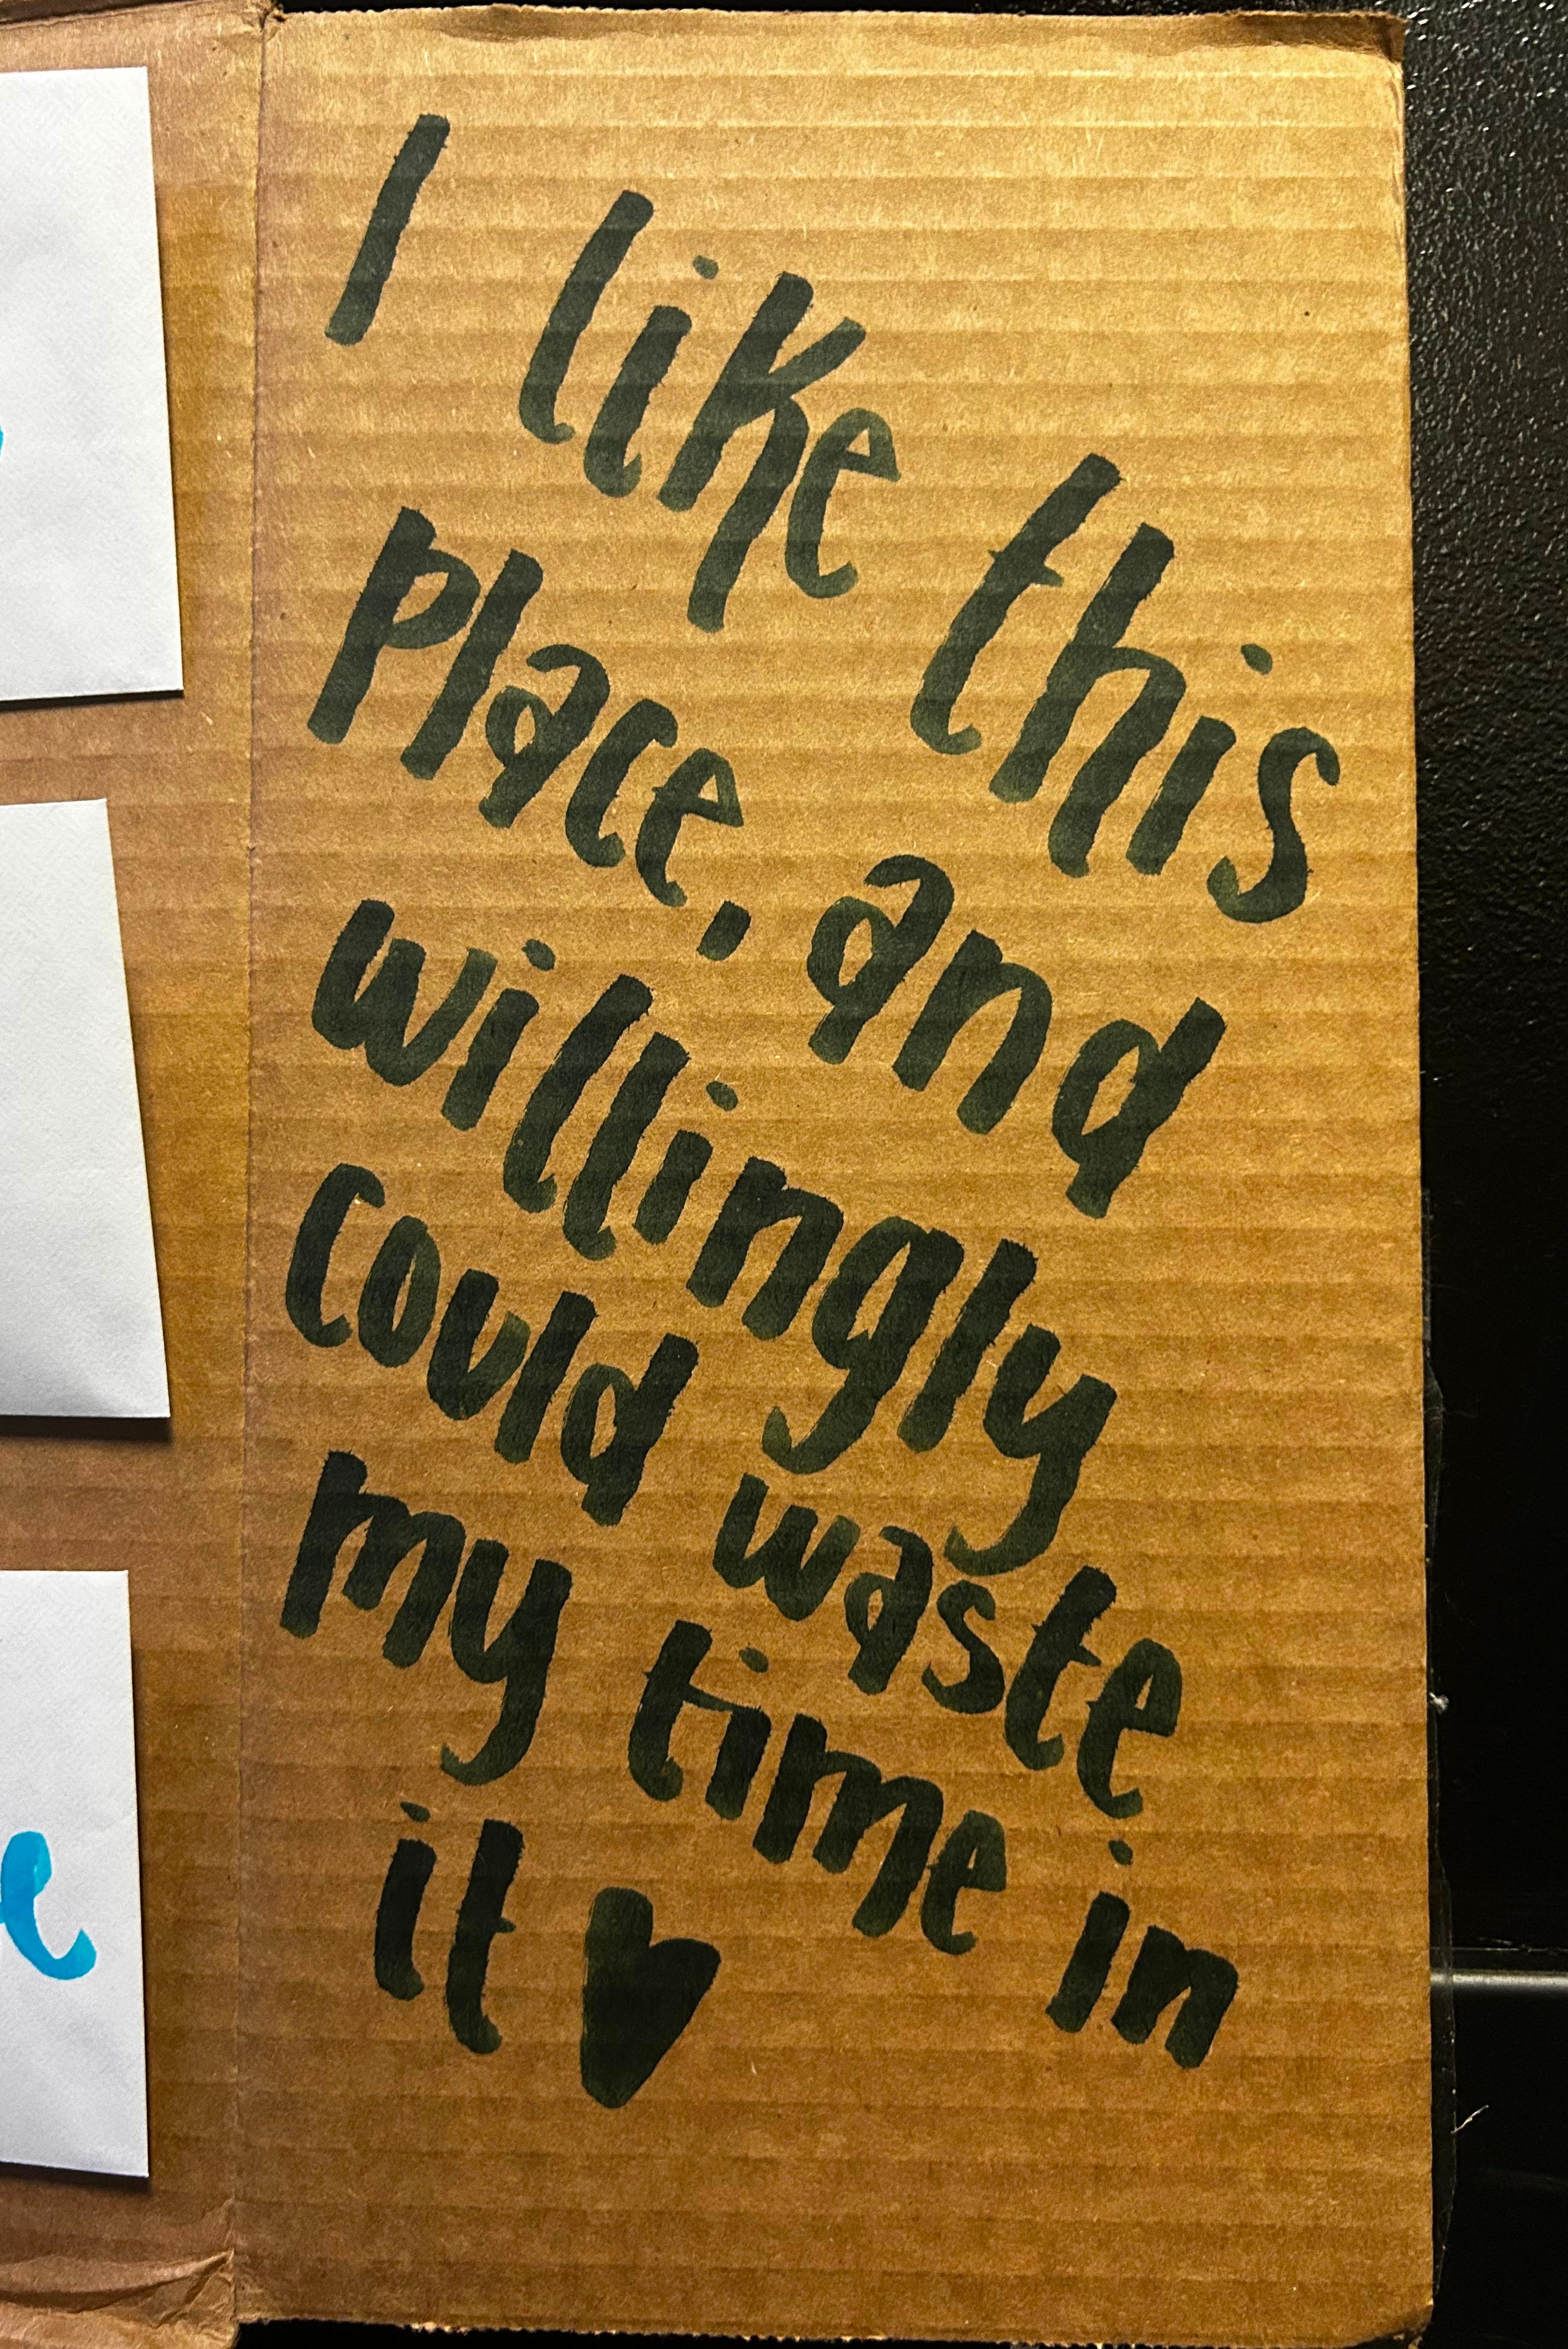 I like this
place, and
willingly
could waste
my time in
it ♥